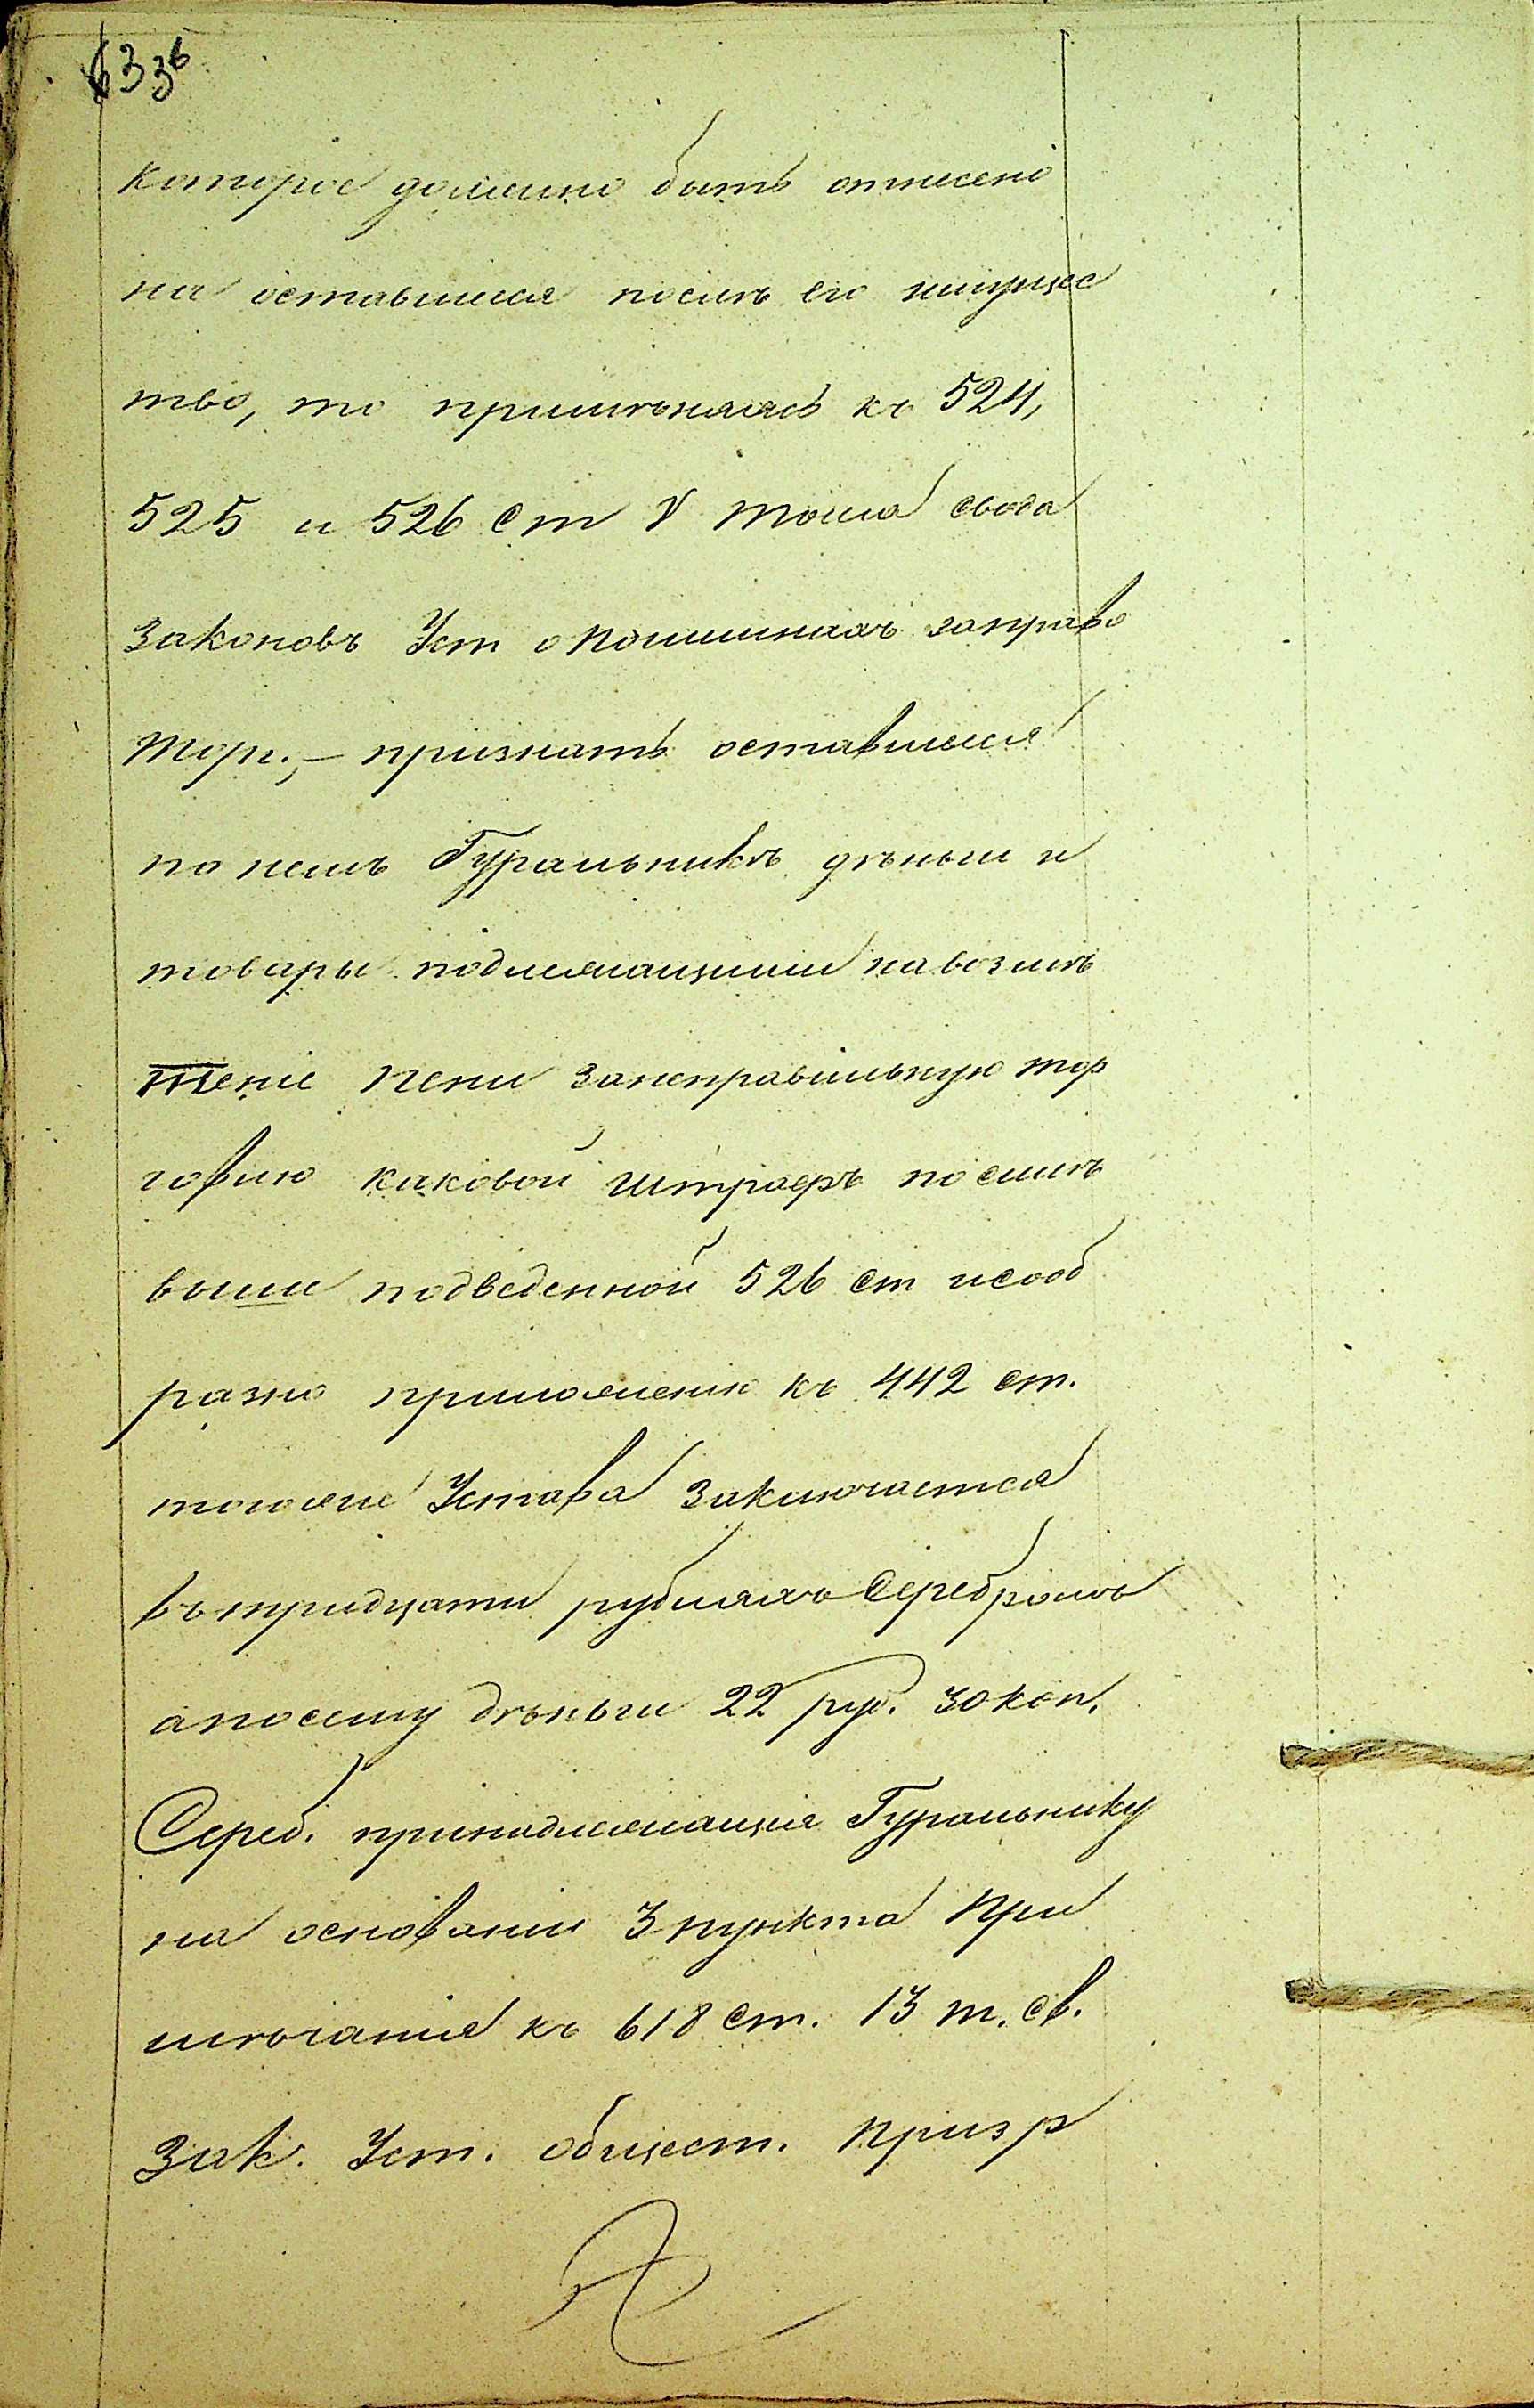 которое должно быть отнесено
на оставшееся послѣ его имущес
тво, то примѣняясь къ 524,
525 и 526 ст V тома свода
Законовъ Уст о пошлинахъ заправо
торг., – признать оставшіеся
по немъ Гуральникѣ дѣньги и
товары подлежащими на возмѣ
щеніе пени занеправильную тор
говлю каковой штрафъ по силѣ
выше подведенной 526 ст исооб
разно приложенію къ 442 ст.
тогоже Устава заключается
въ тридцати рубляхъ Серебромъ
апосему дѣньги 22 руб. 30 коп.
Сереб. принадлежащія Гуральнику
на основаніи 3 пункта При
мѣчанія къ 618 ст. 13 т. св.
Зак. Уст. общест. призр